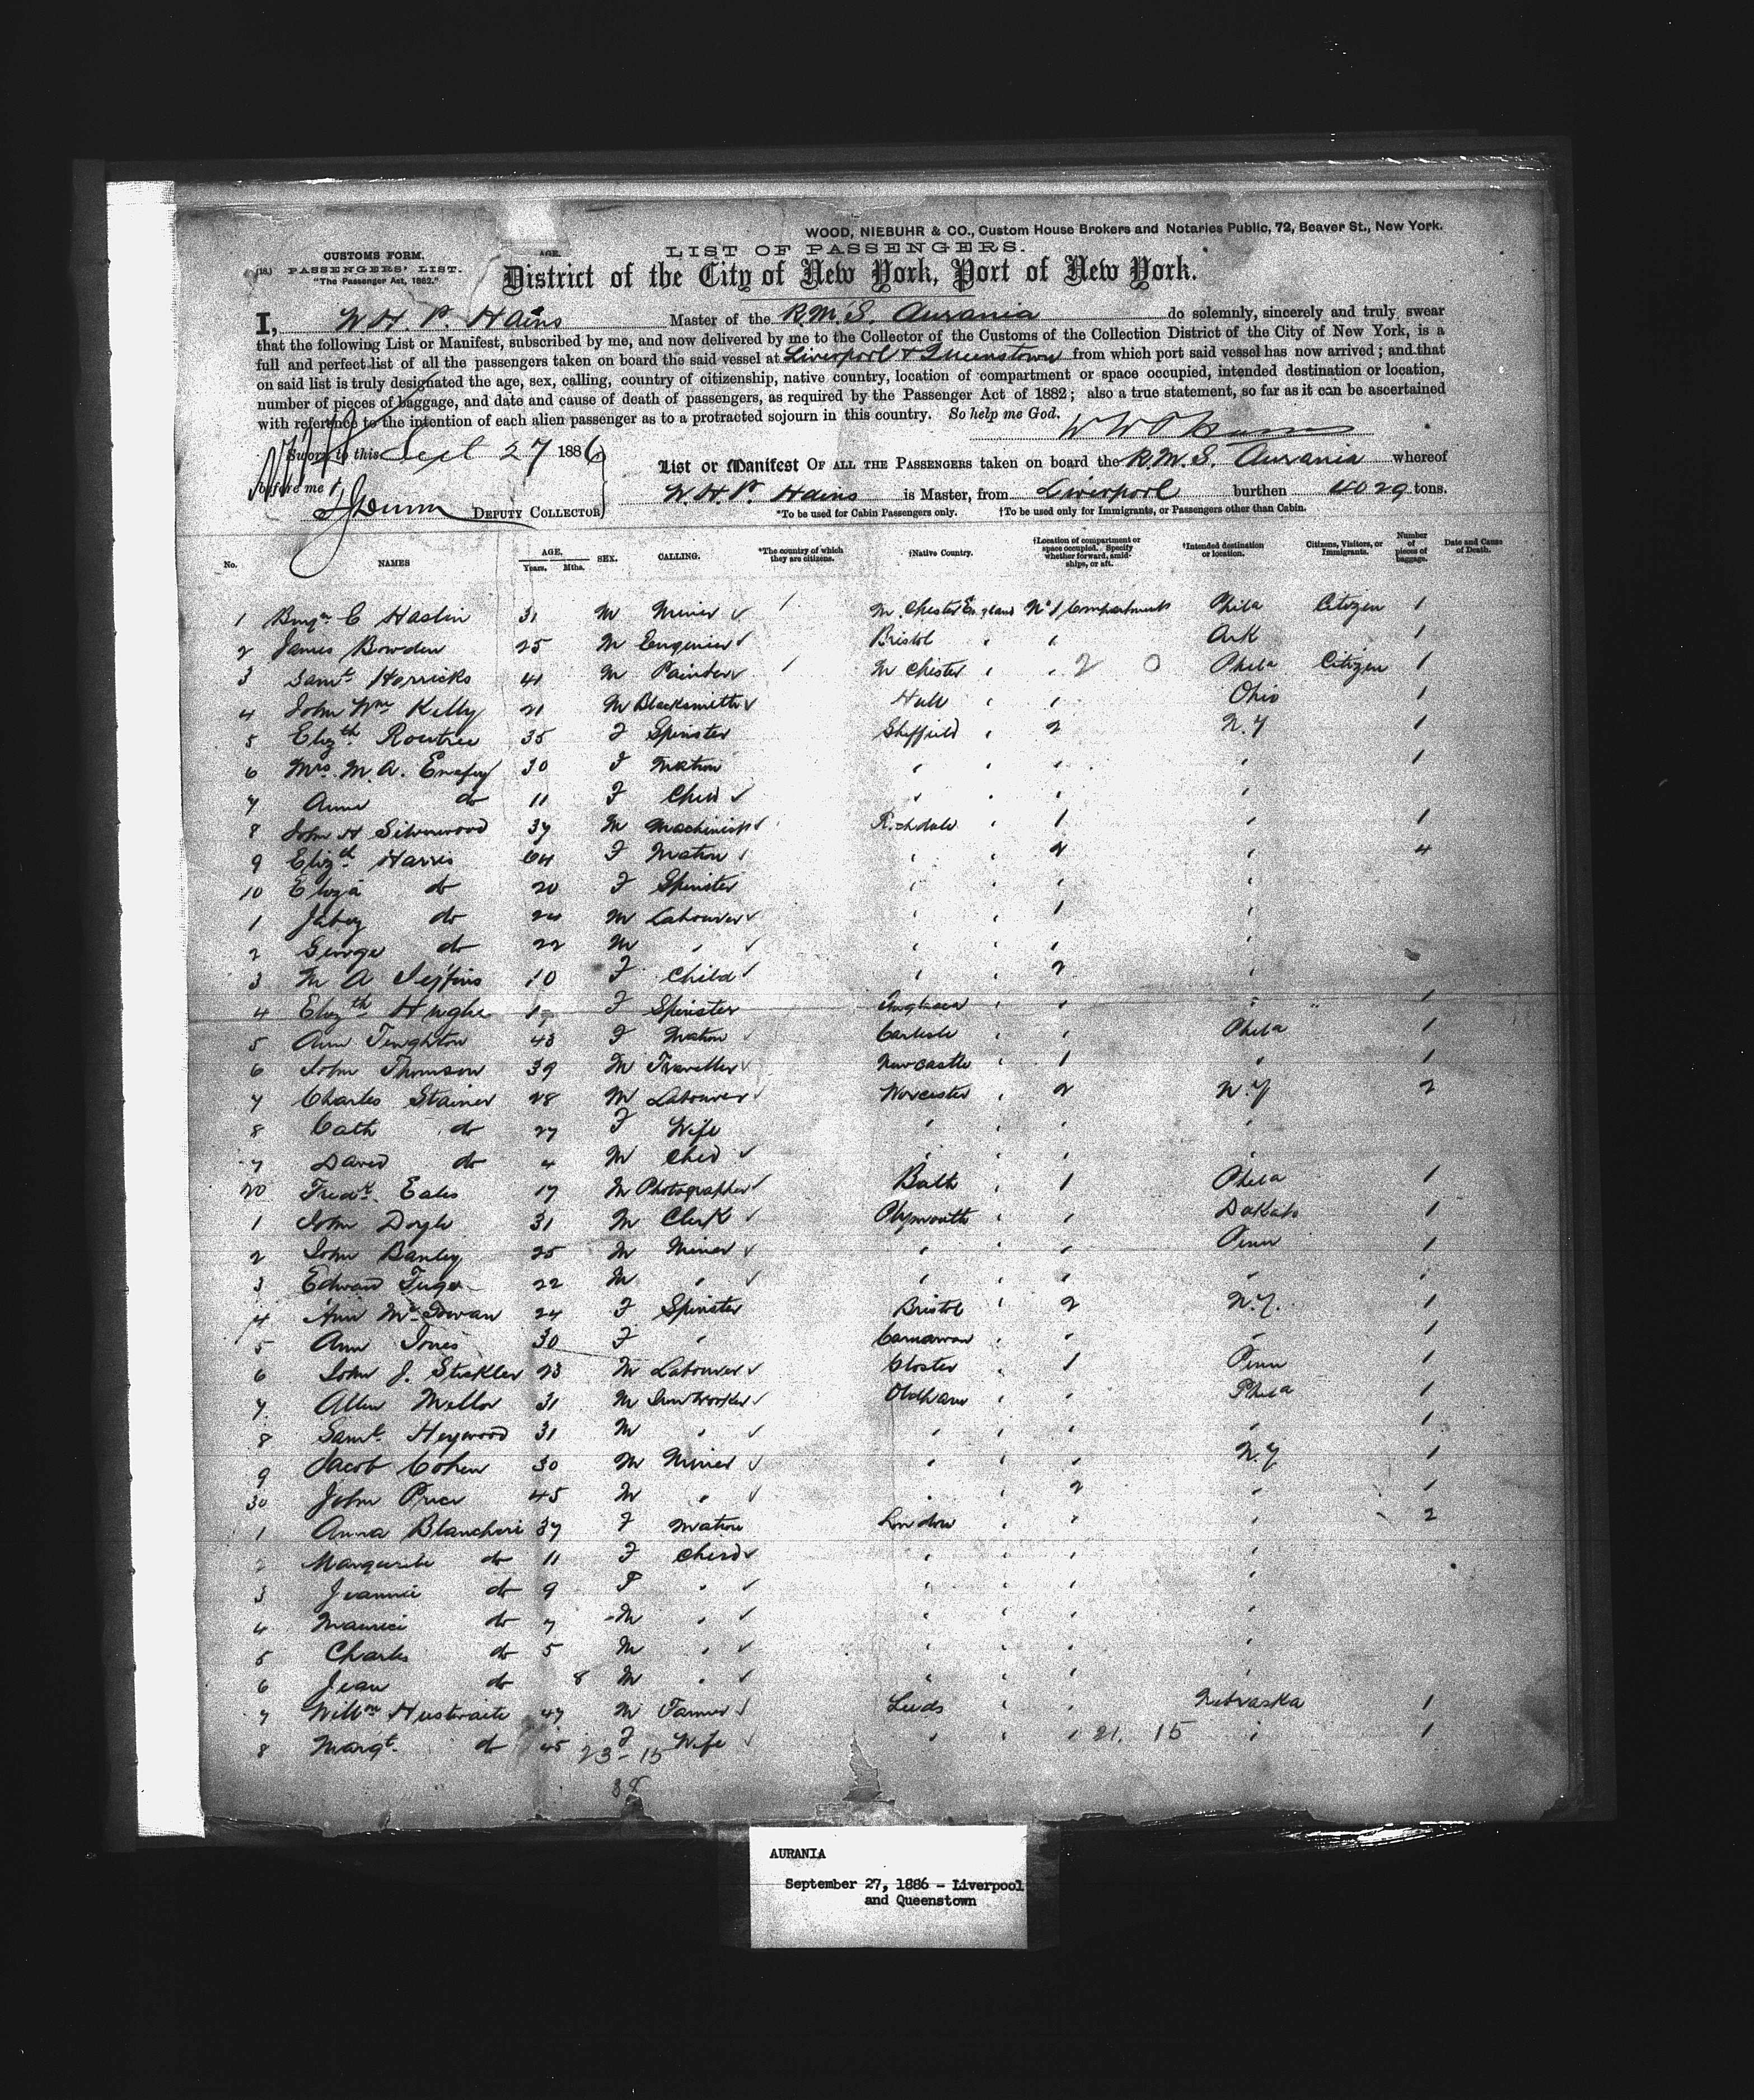 WOOD, NIEBUHR & CO., Custom House Brokers and Notaries Public, 72, Beaver St., New York.
CUSTOMS FORM. AGE. LIST OF PASSENGERS.
(18.) PASSENGERS' LIST.
"The Passenger Act, 1882."
District of the City of New York, Port of New York.
I, W H. P. Hains Master of the R.M.S. Aurania do solemnly, sincerely and truly swear
that the following List or Manifest, subscribed by me, and now delivered by me to the Collector of the Customs of the Collection District of the City of New York, is a
full and perfect list of all the passengers taken on board the said vessel at Liverpool & Queenstown from which port said vessel has now arrived; and that
on said list is truly designated the age, sex, calling, country of citizenship, native country, location of compartment or space occupied, intended destination or location,
number of pieces of baggage, and date and cause of death of passengers, as required by the Passenger Act of 1882; also a true statement, so far as it can be ascertained
with reference to the intention of each alien passenger as to a protracted sojourn in this country. So help me God.
Sworn to this Sept 27 1886
before me
DEPUTY COLLECTOR
List or Manifest OF ALL THE PASSENGERS taken on board the R.M.S. Aurania whereof
W. H. P. Hains is Master, from Liverpool burthen 4029 tons.
*To be used for Cabin Passengers only. †To be used only for Immigrants, or Passengers other than Cabin.
No. NAMES AGE. Years. Mths. SEX. CALLING. *The country of which they are citizens. †Native Country. †Location of compartment or space occupied. Specify whether forward, amidships, or aft. †Intended destination or location. Citizens, Visitors, or Immigrants. Number of pieces of baggage. Date and Cause of Death.
1 C Haslin 31 M Miner M. Chester England No 1 Compartment Phila Citizen 1
2 James Bowden 25 M Engenier Bristol Ark 1
3 Saml Horricks 41 M Painter M Chester 2 0 Phila Citizen 1
4 John Wm Kelly 21 M Blacksmith Hull Ohio 1
5 Elizth Rowtree 35 F Spinster Sheffield 2 N.Y 1
6 Mrs M. A. 30 F Matron 1
7 Anne do 11 F Child
8 John H Silverwood 37 M Machinist Rochdale 1 1
9 Elizth Harris 64 F Matron 2 4
10 Eliza do 20 F Spinster
1 Jabez do 24 M Labourer 1
2 George do 22 M
3 M A 10 F Child 2
4 Elizth Hughe F Spinster 1
5 Ann 43 F Matron Carlisle Phila 1
6 John Thomson 39 M Traveller Newcastle 1 1
7 Charles Stainer 28 M Labourer Worcester 2 N.Y 2
8 Cath do 27 F Wife
David do 4 M Child
20 Fredk Eales 17 M Photographer Bath 1 Phila 1
1 John Doyle 31 M Clerk Plymouth Dakota 1
2 John 25 M Miner Penn 1
3 Edward 22 M
4 Ann 24 F Spinster Bristol 2 N.Y. 1
5 Ann Jones 30 F Carnarvon 1
6 John J. Stickler 23 M Labourer 1 Penn 1
7 Allen Mellor 31 M Oldham Phila 1
8 Saml Heywood 31 M 1
9 Jacob Cohen 30 M Miner N.Y 1
30 John Price 45 M 2 1
1 Anna 37 F Matron London 2
2 Marguerite do 11 F Child
3 Jeannie do 9 F
4 Maurice do 7 M
5 Charles do 5 M
6 Jean do 8 M
7 Willm Hustwaite 47 M Farmer Leeds Nebraska 1
8 Margt. do 45 F Wife 21. 15 1
23 - 15
38
AURANIA
September 27, 1886 - Liverpool
and Queenstown